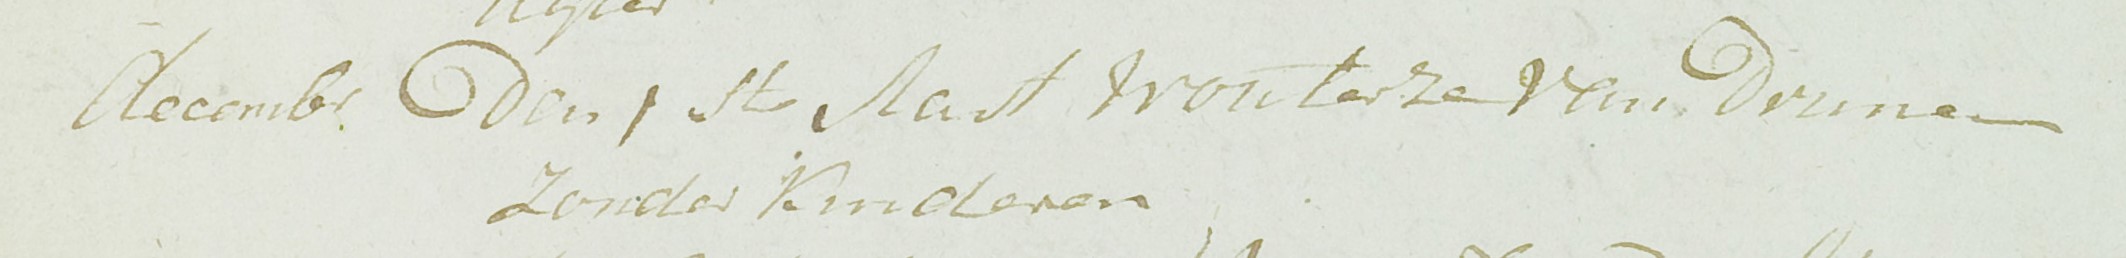 decembr Den 1 st Aart Wouterze Van Drunen
Zonder Kinderen